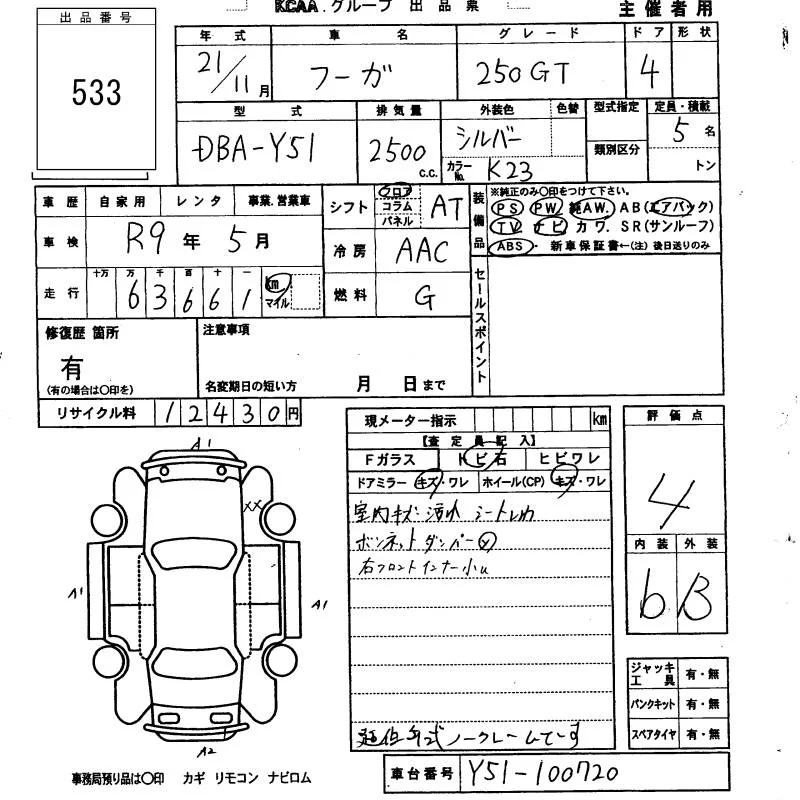 KCAA.グループ 出品票
主催者用
出品番号
533
年式 車名 グレード ドア 形状
21/11月 フーガ 250GT 4
型式 排気量 外装色 色替 型式指定 定員・積載
DBA-Y51 2500c.c. シルバー 5名
カラーNo. K23 類別区分 トン
車歴 自家用 レンタ 事業.営業車
車検 R9年5月
走行 十万 万 千 百 十 一
63661 km マイル
シフト フロア コラム パネル AT
冷房 AAC
燃料 G
装備品 ※純正のみ○印をつけて下さい。
PS PW 純AW. AB(エアバック)
TV ナビ カワ. SR(サンルーフ)
ABS・ 新車保証書←(注) 後日送りのみ
セールスポイント
修復歴 箇所
有
(有の場合は○印を)
注意事項
名変期日の短い方 月 日まで
リサイクル料 12430円
現メーター指示 km
【査定員記入】
Fガラス トビ石 ヒビワレ
ドアミラー キズ・ワレ ホイール(CP) キズ・ワレ
室内キズ 汚れ シート
ボンネットダンパー
右フロントインナー小
ノークレームです
評価点
4
内装 外装
b B
A1
XX
A1
A1
A2
ジャッキ工具 有・無
パンクキット 有・無
スペアタイヤ 有・無
事務局預り品は○印 カギ リモコン ナビロム
車台番号 Y51-100720